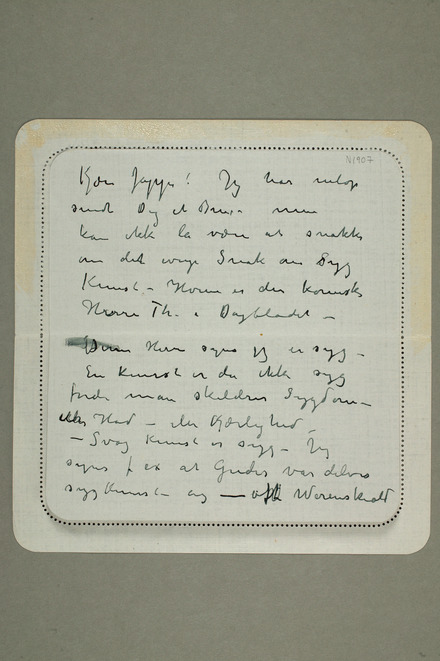 N1907
Kjære Jappe! Jeg har netop
sendt Dig et Brev – men
kan ikke la være at snakke
om det evige Snak om Syg
Kunst – Hvem er den komiske
Herre Th. i Dagbladet –
Denne Herre synes jeg er syg –
En Kunst er da ikke syg
fordi man skildrer Sygdom –
eller Had – eller Kjærlighed –
– Svag Kunst er syg – Jeg
synes f ex at Gudes var delvis
syg Kunst – og — ofte Werenskiold